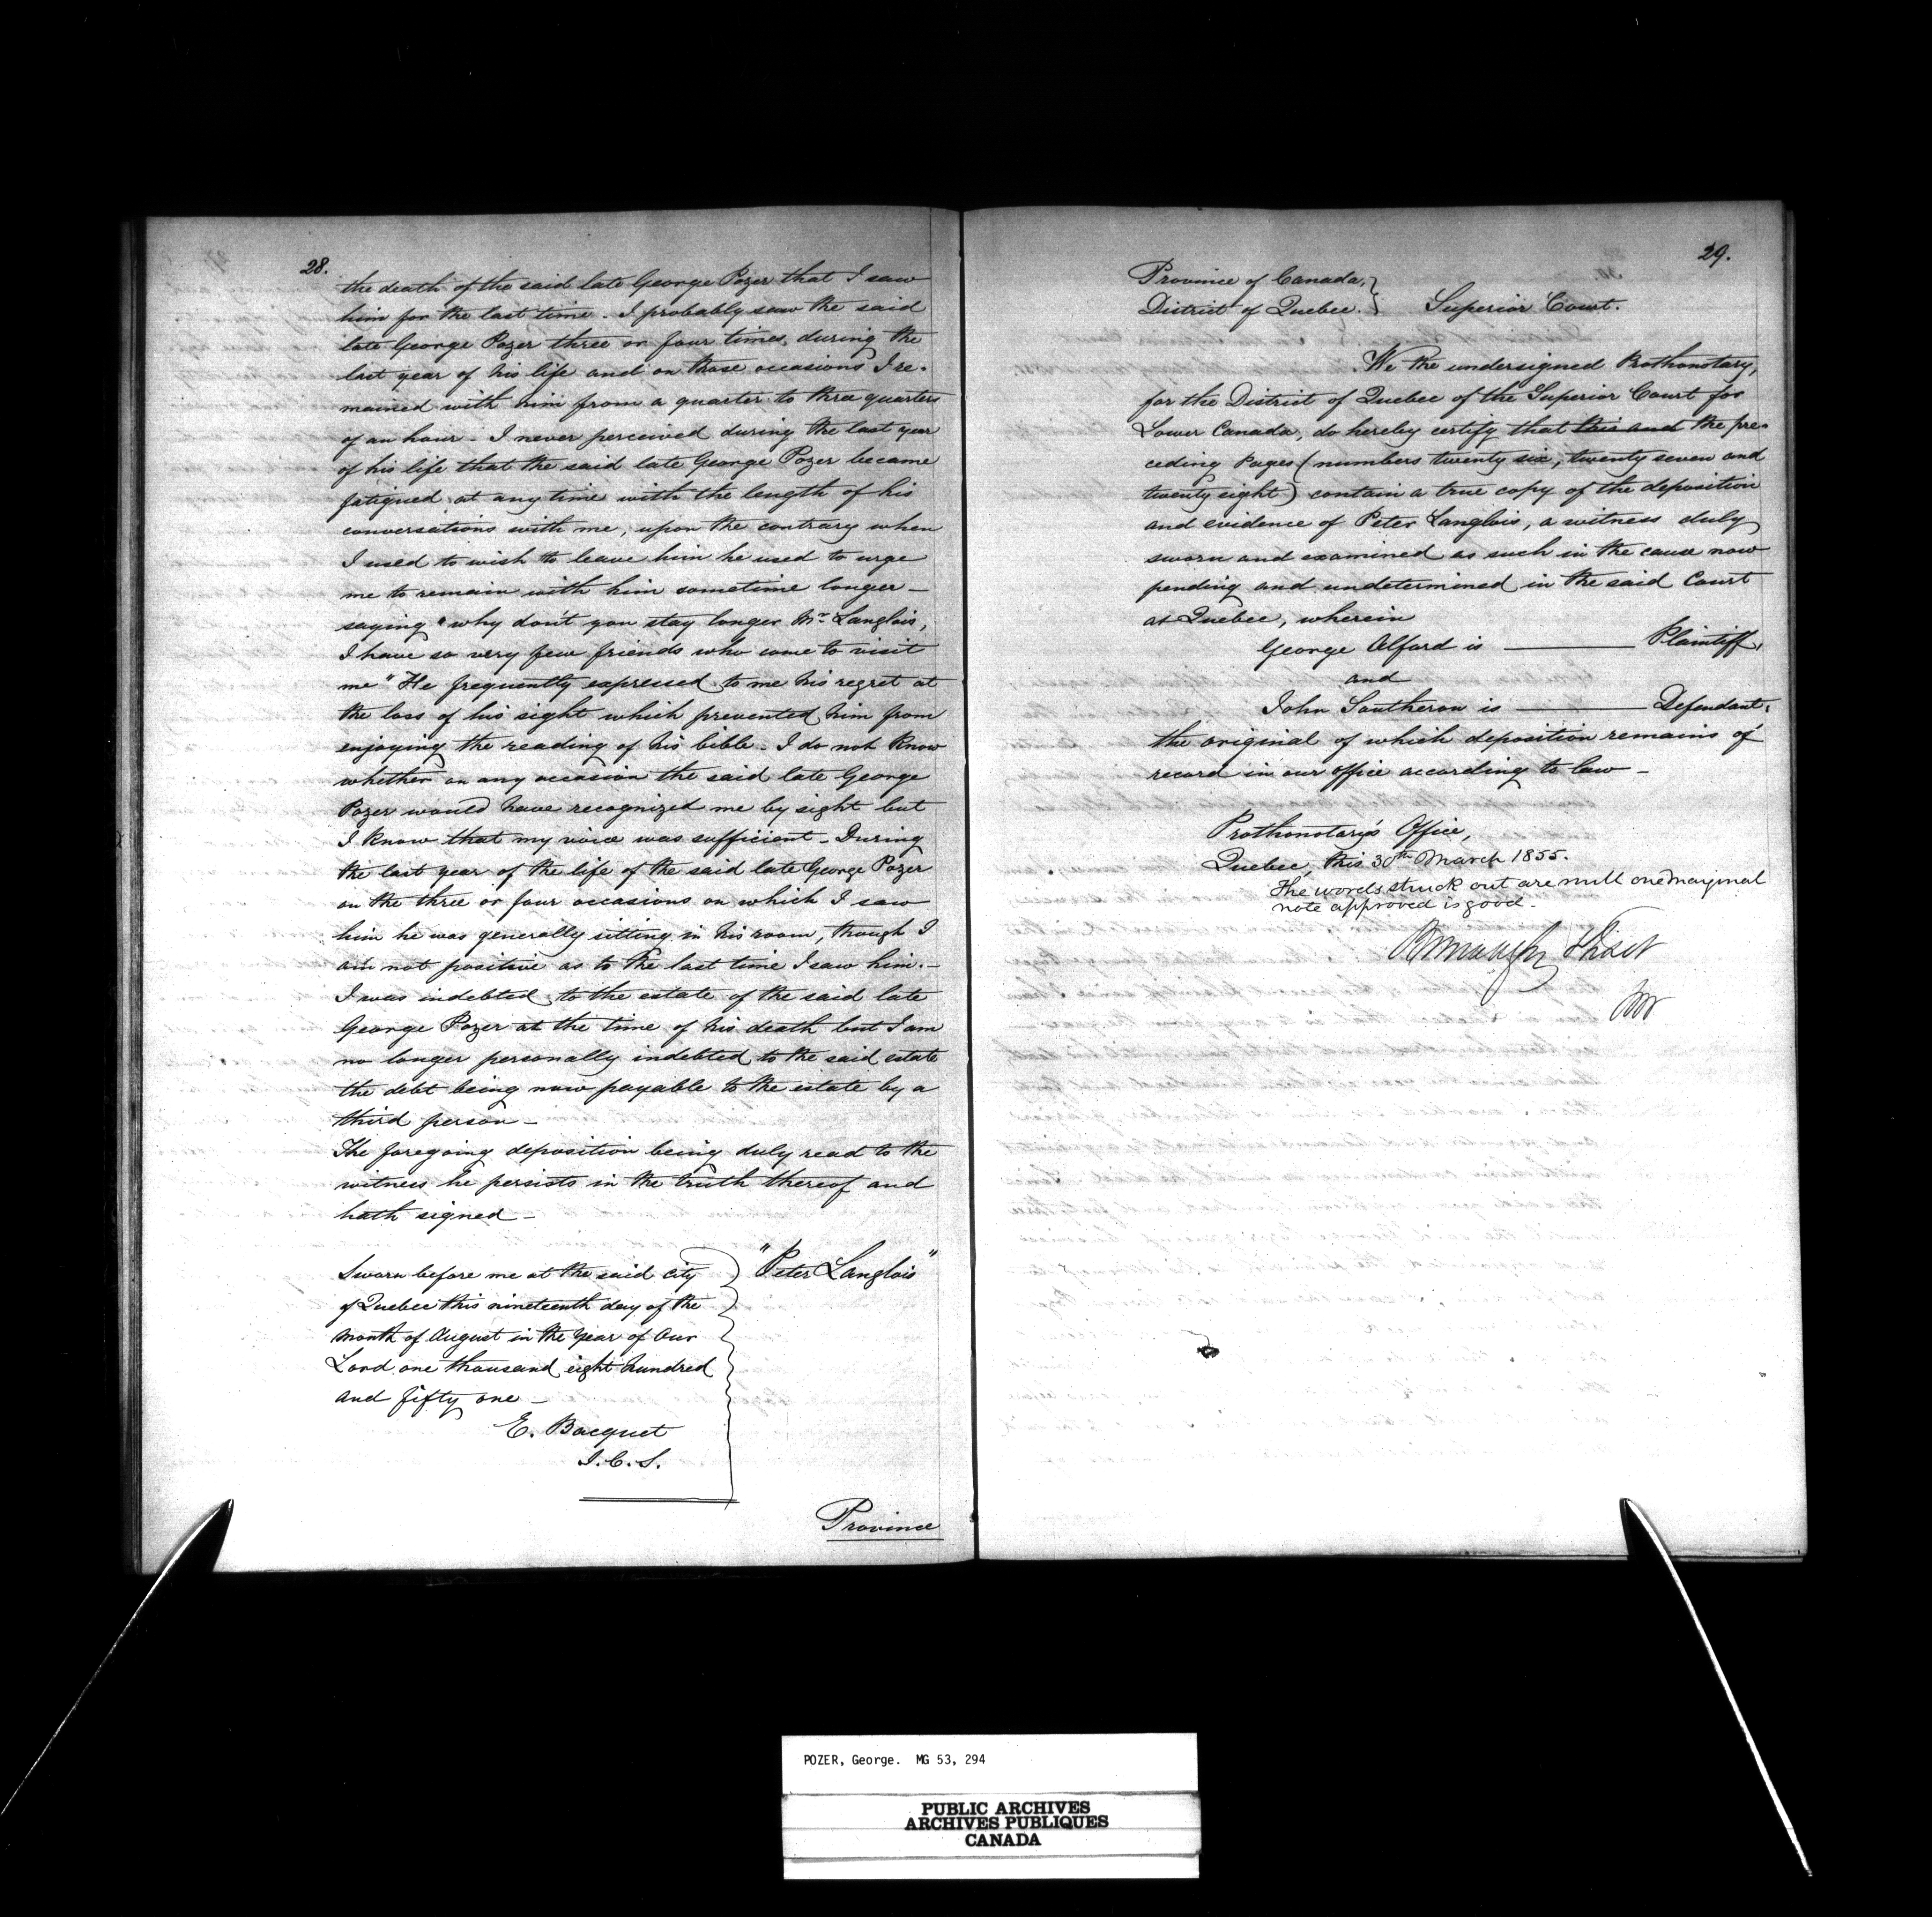 28.
the death of the said late George Pozer that I saw
him for the last time. I probably saw the said
late George Pozer three or four times, during the
last year of his life and on those occasions I re-
mained with him from a quarter to three quarters
of an hour - I never perceived during the last year
of his life that the said late George Pozer became
fatigued at any time with the length of his
conversations with me, upon the contrary when
I used to wish to leave him he used to urge
me to remain with him sometime longer -
saying "why don't you stay longer Mr. Langlois,
I have so very few friends who come to visit
me" He frequently expressed to me his regret at
the loss of his sight which prevented him from
enjoying the reading of his bible - I do not know
whether on any occasion the said late George
Pozer would have recognized me by sight but
I know that my voice was sufficient - During
the last year of the life of the said late George Pozer
on the three or four occasions on which I saw
him he was generally sitting in his room, though I
am not positive as to the last time I saw him. -
I was indebted to the estate of the said late
George Pozer at the time of his death but I am
no longer personally indebted to the said estate
the debt being now payable to the estate by a
third person -
The foregoing deposition being duly read to the
witness he persists in the truth thereof and
hath signed -
"Peter Langlois"
Sworn before me at the said city
of Quebec this nineteenth day of the
month of August in the year of Our
Lord one thousand eight hundred
and fifty one -
E. Bacquet
J.C.S.
Province
29.
Province of Canada,
District of Quebec. Superior Court.
We the undersigned Prothonotary,
for the District of Quebec of the Superior Court for
Lower Canada, do hereby certify that this and the pre-
ceding Pages (numbers twenty six, twenty seven and
twenty eight) contain a true copy of the deposition
and evidence of Peter Langlois, a witness duly
sworn and examined as such in the cause now
pending and undetermined in the said Court
at Quebec, wherein
George Alford is ——— Plaintiff,
and
John Southeron is ——— Defendant,
the original of which deposition remains of
record in our office according to law -
Prothonotary's Office,
Quebec, this 30th March 1855.
The words struck out are null one marginal
note approved is good -
Burroughs Fiset
POZER, George. MG 53, 294
PUBLIC ARCHIVES
ARCHIVES PUBLIQUES
CANADA